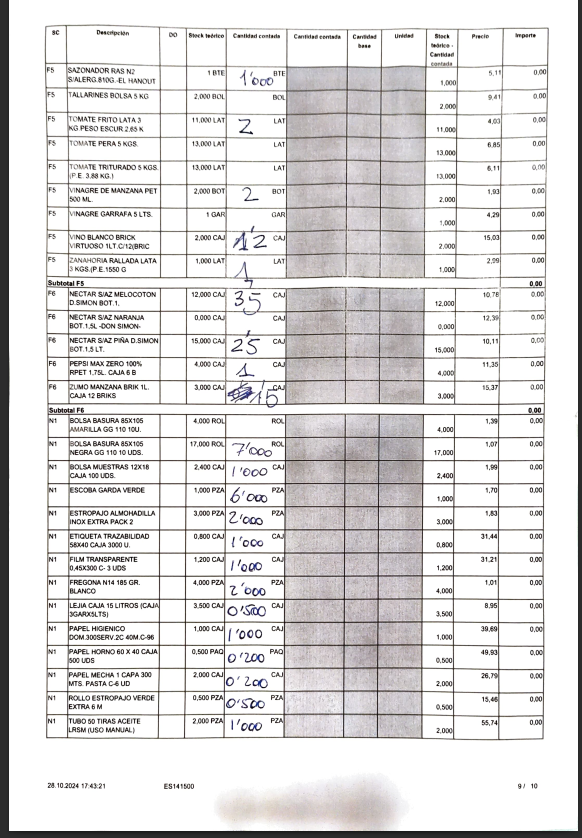 SC Descripción DO Stock teórico Cantidad contada Cantidad contada Cantidad base Unidad Stock teórico - Cantidad contada Precio Importe
F5 SAZONADOR RAS N2 S/ALERG.810G.-EL HANOUT 1 BTE 1'000 BTE 1,000 5,11 0,00
F5 TALLARINES BOLSA 5 KG 2,000 BOL BOL 2,000 9,41 0,00
F5 TOMATE FRITO LATA 3 KG.PESO ESCUR 2.65 K 11,000 LAT 2 LAT 11,000 4,03 0,00
F5 TOMATE PERA 5 KGS. 13,000 LAT LAT 13,000 6,85 0,00
F5 TOMATE TRITURADO 5 KGS. (P.E. 3.88 KG.) 13,000 LAT LAT 13,000 6,11 0,00
F5 VINAGRE DE MANZANA PET 500 ML. 2,000 BOT 2 BOT 2,000 1,93 0,00
F5 VINAGRE GARRAFA 5 LTS. 1 GAR GAR 1,000 4,29 0,00
F5 VINO BLANCO BRICK VIRTUOSO 1LT.C/12(BRIC 2,000 CAJ 1'2 CAJ 2,000 15,03 0,00
F5 ZANAHORIA RALLADA LATA 3 KGS.(P.E.1550 G 1,000 LAT 1 LAT 1,000 2,99 0,00
Subtotal F5 0,00
F6 NECTAR S/AZ MELOCOTON D.SIMON BOT.1, 12,000 CAJ 3'5 CAJ 12,000 10,78 0,00
F6 NECTAR S/AZ NARANJA BOT.1,5L -DON SIMON- 0,000 CAJ CAJ 0,000 12,39 0,00
F6 NECTAR S/AZ PIÑA D.SIMON BOT.1,5 LT. 15,000 CAJ 2'5 CAJ 15,000 10,11 0,00
F6 PEPSI MAX ZERO 100% RPET 1,75L. CAJA 6 B 4,000 CAJ 1 CAJ 4,000 11,35 0,00
F6 ZUMO MANZANA BRIK 1L. CAJA 12 BRIKS 3,000 CAJ 1'5 CAJ 3,000 15,37 0,00
Subtotal F6 0,00
N1 BOLSA BASURA 85X105 AMARILLA GG 110 10U. 4,000 ROL ROL 4,000 1,39 0,00
N1 BOLSA BASURA 85X105 NEGRA GG 110 10 UDS. 17,000 ROL 7'000 ROL 17,000 1,07 0,00
N1 BOLSA MUESTRAS 12X18 CAJA 100 UDS. 2,400 CAJ 1'000 CAJ 2,400 1,99 0,00
N1 ESCOBA GARDA VERDE 1,000 PZA 6'000 PZA 1,000 1,70 0,00
N1 ESTROPAJO ALMOHADILLA INOX EXTRA PACK 2 3,000 PZA 2'000 PZA 3,000 1,83 0,00
N1 ETIQUETA TRAZABILIDAD 58X40 CAJA 3000 U. 0,800 CAJ 1'000 CAJ 0,800 31,44 0,00
N1 FILM TRANSPARENTE 0.45X300 C- 3 UDS 1,200 CAJ 1'000 CAJ 1,200 31,21 0,00
N1 FREGONA N14 185 GR. BLANCO 4,000 PZA 2'000 PZA 4,000 1,01 0,00
N1 LEJIA CAJA 15 LITROS (CAJA 3GARX5LTS) 3,500 CAJ 0'500 CAJ 3,500 8,95 0,00
N1 PAPEL HIGIENICO DOM.300SERV.2C 40M.C-96 1,000 CAJ 1'000 CAJ 1,000 39,69 0,00
N1 PAPEL HORNO 60 X 40 CAJA 500 UDS 0,500 PAQ 0'200 PAQ 0,500 49,93 0,00
N1 PAPEL MECHA 1 CAPA 300 MTS. PASTA C-6 UD 2,000 CAJ 0'200 CAJ 2,000 26,79 0,00
N1 ROLLO ESTROPAJO VERDE EXTRA 6 M 0,500 PZA 0'500 PZA 0,500 15,46 0,00
N1 TUBO 50 TIRAS ACEITE LRSM (USO MANUAL) 2,000 PZA 1'000 PZA 2,000 55,74 0,00
28.10.2024 17:43:21 ES141500 9 / 10